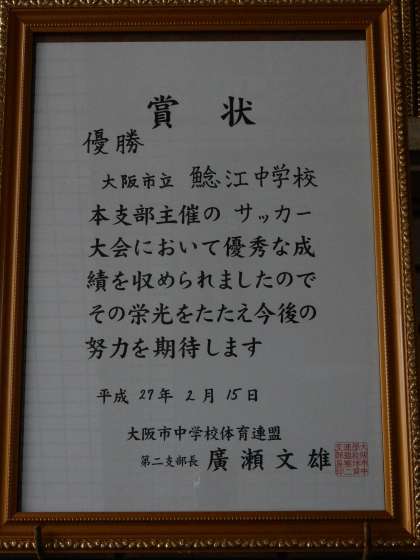 賞状
優勝
大阪市立 鯰江中学校
本支部主催の サッカー
大会において優秀な成
績を収められましたので
その栄光をたたえ今後の
努力を期待します
平成 27年 2月 15日
大阪市中学校体育連盟
第二支部長 廣瀬文雄